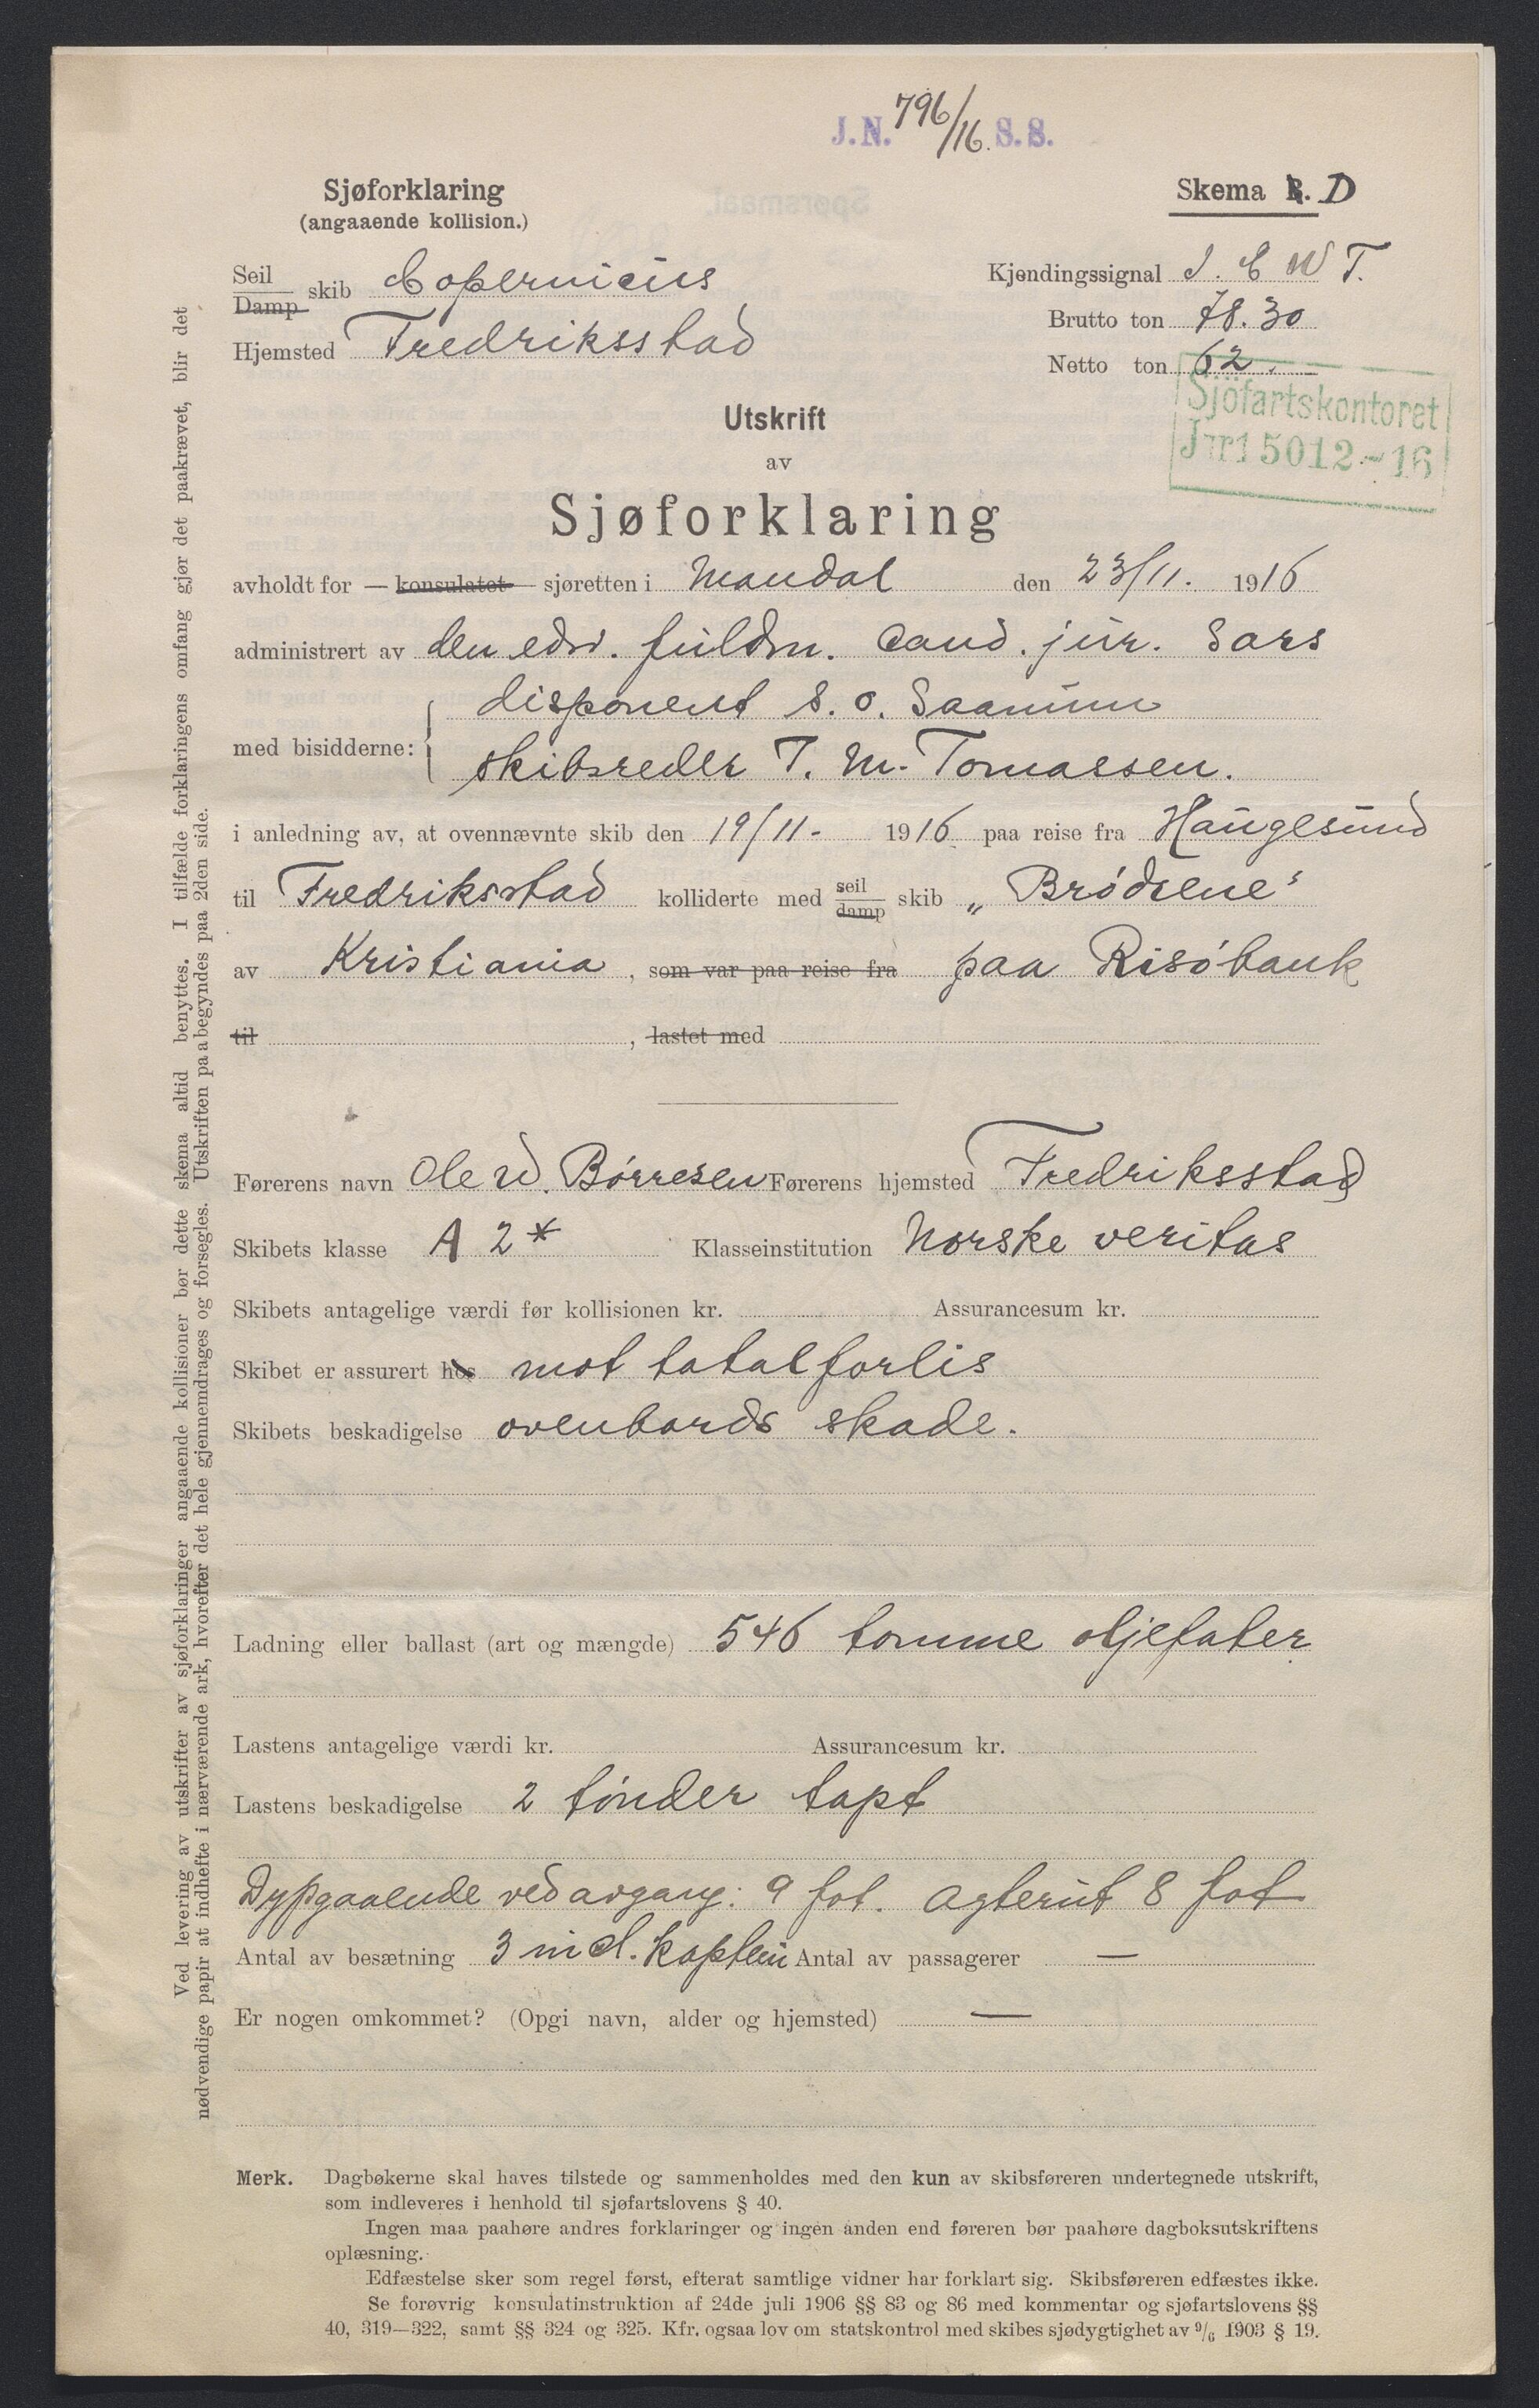 J.N. 796/16. S.S.
Sjøforklaring
(angaaende kollision.)
Skema B. D
Seil
Damp skib Copernicus
Kjendingssignal J. C W T.
Brutto ton 78.30
Hjemsted Fredriksstad
Netto ton 62.
Sjöfartskontoret
Jnr15012-16
Utskrift
av
Sjøforklaring
avholdt for — konsulatet — sjøretten i Mandal den 23/11. 1916
administrert av den edsv. fuldm. Cand. jur. Sars
med bisidderne: disponent S. O. Saanum
skibsreder T. M. Tomassen.
i anledning av, at ovennævnte skib den 19/11- 1916 paa reise fra Haugesund
til Fredriksstad kolliderte med seil damp skib „Brødrene"
av Kristiania, som var paa reise fra paa Risøbank
til , lastet med
Førerens navn Ole W. Børresen Førerens hjemsted Fredriksstad
Skibets klasse A 2* Klasseinstitution Norske veritas
Skibets antagelige værdi før kollisionen kr. Assurancesum kr.
Skibet er assurert hos mot totalforlis
Skibets beskadigelse ovenbords skade.
Ladning eller ballast (art og mængde) 546 tomme oljefater
Lastens antagelige værdi kr. Assurancesum kr.
Lastens beskadigelse 2 tønder tapt
Dypgaaende ved avgang: 9 fot. Agterut 8 fot
Antal av besætning 3 incl. kaptein Antal av passagerer —
Er nogen omkommet? (Opgi navn, alder og hjemsted) —
Merk. Dagbøkerne skal haves tilstede og sammenholdes med den kun av skibsføreren undertegnede utskrift,
som indleveres i henhold til sjøfartslovens § 40.
Ingen maa paahøre andres forklaringer og ingen anden end føreren bør paahøre dagboksutskriftens
oplæsning.
Edfæstelse sker som regel først, efterat samtlige vidner har forklart sig. Skibsføreren edfæstes ikke.
Se forøvrig konsulatinstruktion af 24de juli 1906 §§ 83 og 86 med kommentar og sjøfartslovens §§
40, 319—322, samt §§ 324 og 325. Kfr. ogsaa lov om statskontrol med skibes sjødygtighet av 9/6 1903 § 19.
Ved levering av utskrifter av sjøforklaringer angaaende kollisioner bør dette skema altid benyttes. I tilfælde forklaringens omfang gjør det paakrævet, blir det
nødvendige papir at indhefte i nærværende ark, hvorefter det hele gjennemdrages og forsegles. Utskriften paabegyndes paa 2den side.